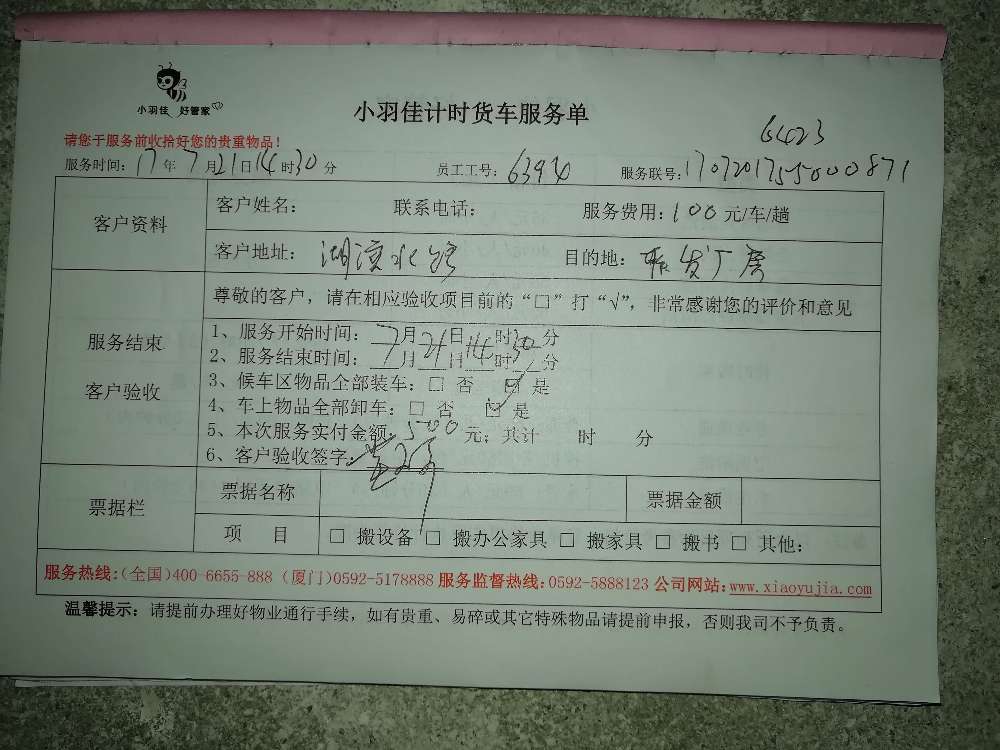 小羽佳 好管家
小羽佳计时货车服务单
6423
请您于服务前收拾好您的贵重物品!
服务时间: 17年7月21日14时30分 员工工号: 63940 服务联号: 1707201755000871
客户资料
客户姓名: 联系电话: 服务费用: 100元/车/趟
客户地址: 湖滨水 目的地: 发厂房
服务结束
客户验收
尊敬的客户,请在相应验收项目前的“□”打“√”,非常感谢您的评价和意见
1、服务开始时间: 7月21日14时30分
2、服务结束时间: 7月21日14时 分
3、候车区物品全部装车:□ 否 ☑ 是
4、车上物品全部卸车:□ 否 ☑ 是
5、本次服务实付金额: 500元;共计 时 分
6、客户验收签字:
票据栏
票据名称 票据金额
项 目 □ 搬设备 □ 搬办公家具 □ 搬家具 □ 搬书 □ 其他:
服务热线:(全国)400-6655-888 (厦门)0592-5178888 服务监督热线:0592-5888123 公司网站:www.xiaoyujia.com
温馨提示:请提前办理好物业通行手续,如有贵重、易碎或其它特殊物品请提前申报,否则我司不予负责。